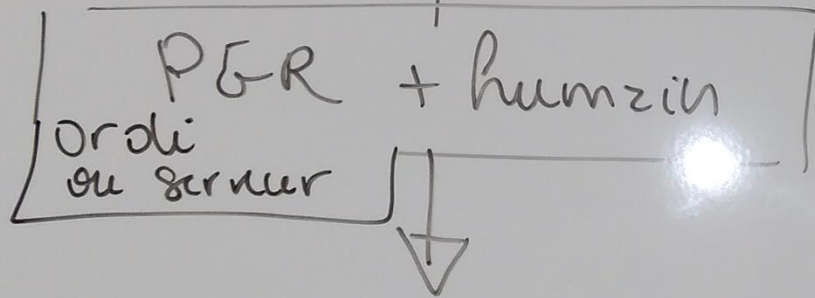 PGR + humain
ordi
ou serveur